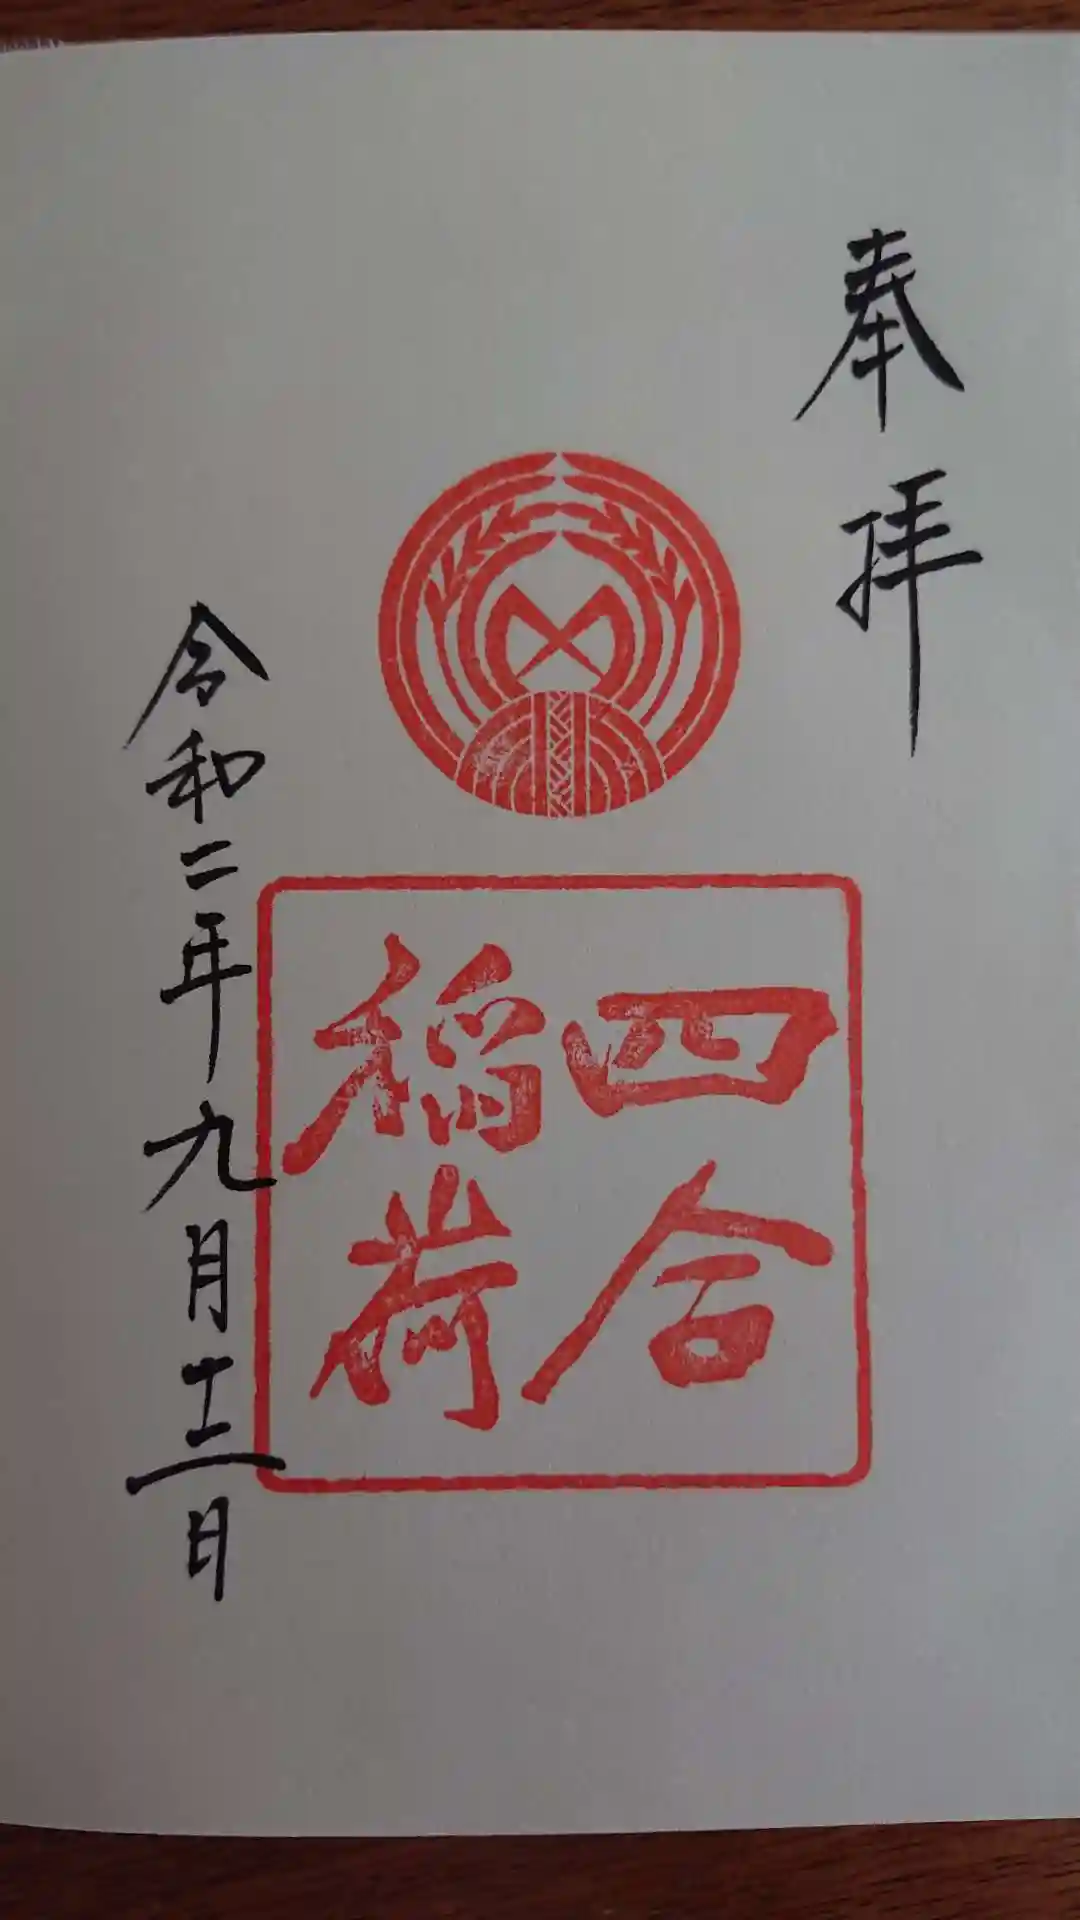 奉拝
四合
稲荷
令和二年九月十三日